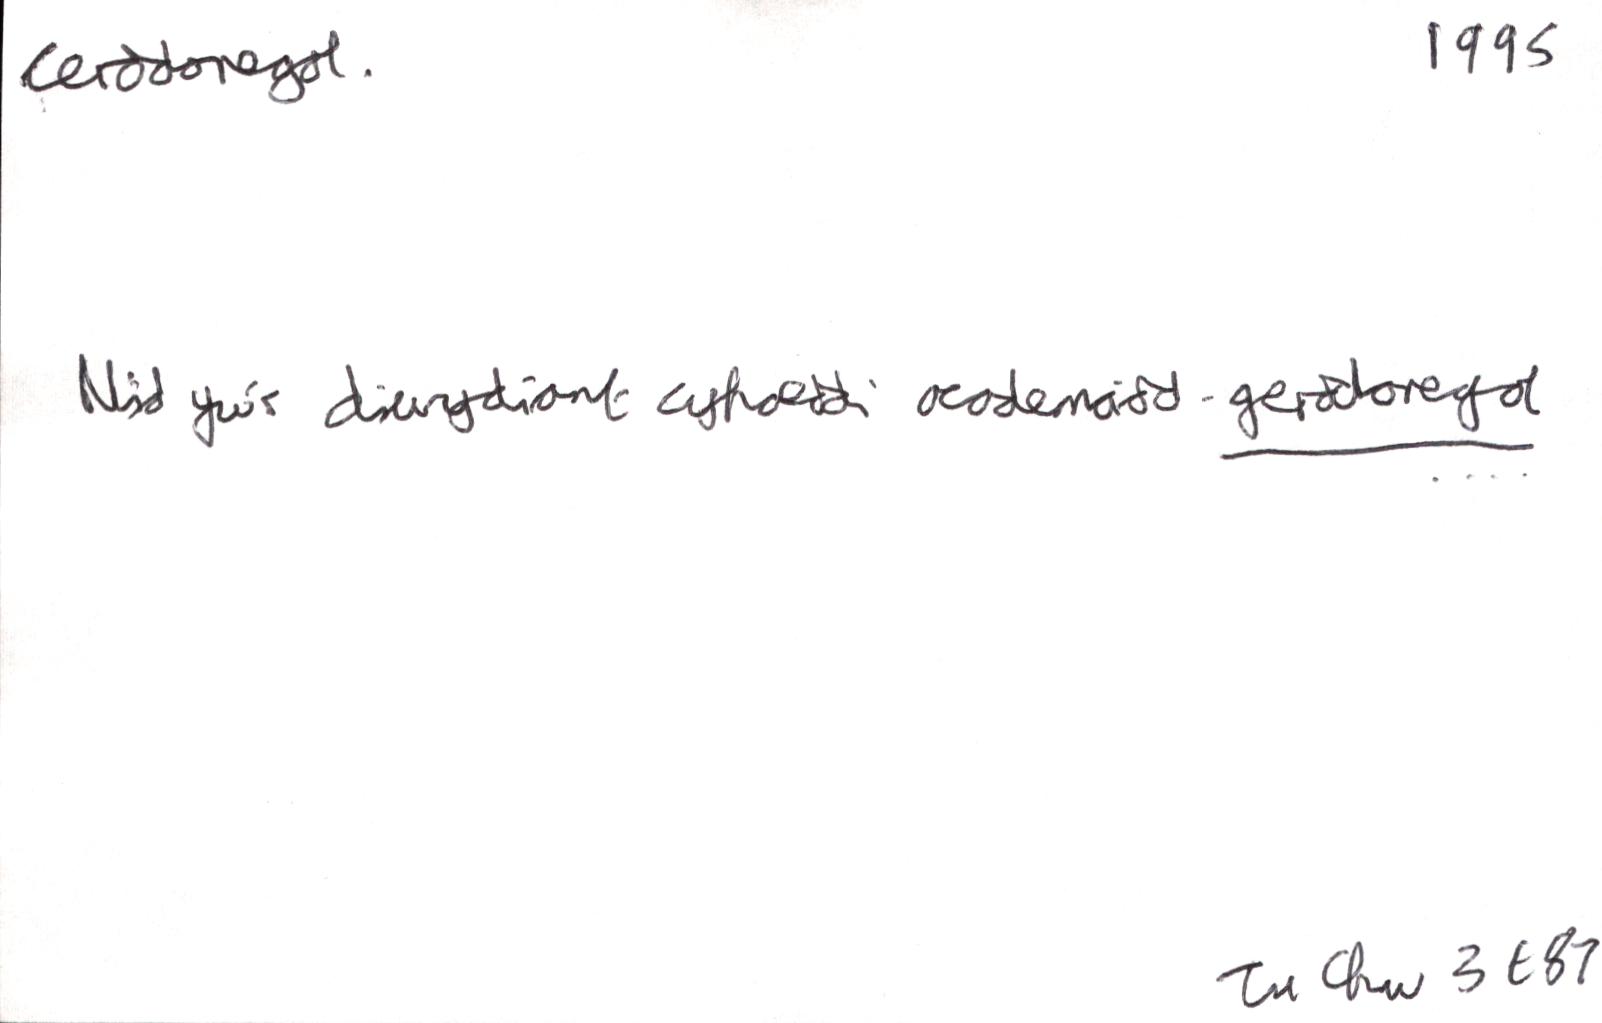 cerddoregol. 1995
Nid yw'r diwydiant cyhoeddi academaidd-gerddoregol
....
Tu Chw 3 t87